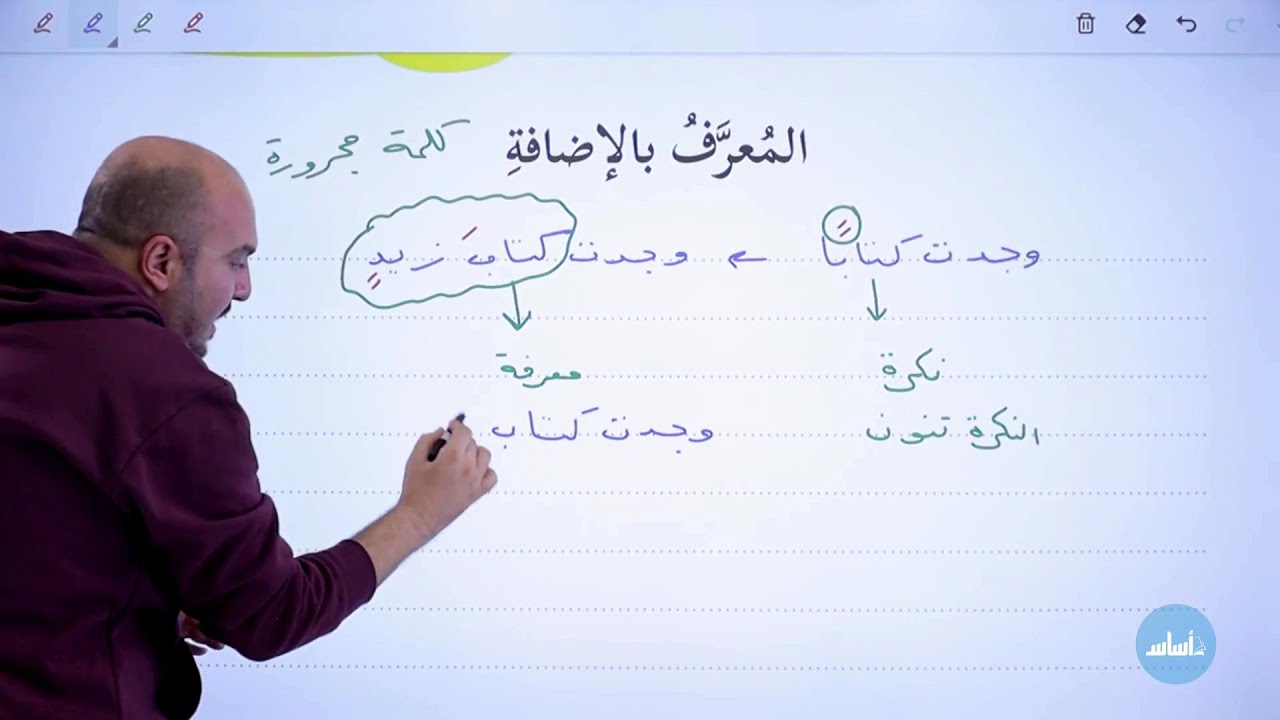 المُعرَّفُ بالإضافةِ كلمة مجرورة
وجدت كتابًا ← وجدت كتابَ زيدٍ
نكرة معرفة
النكرة تنون وجدت كتاب
أساس